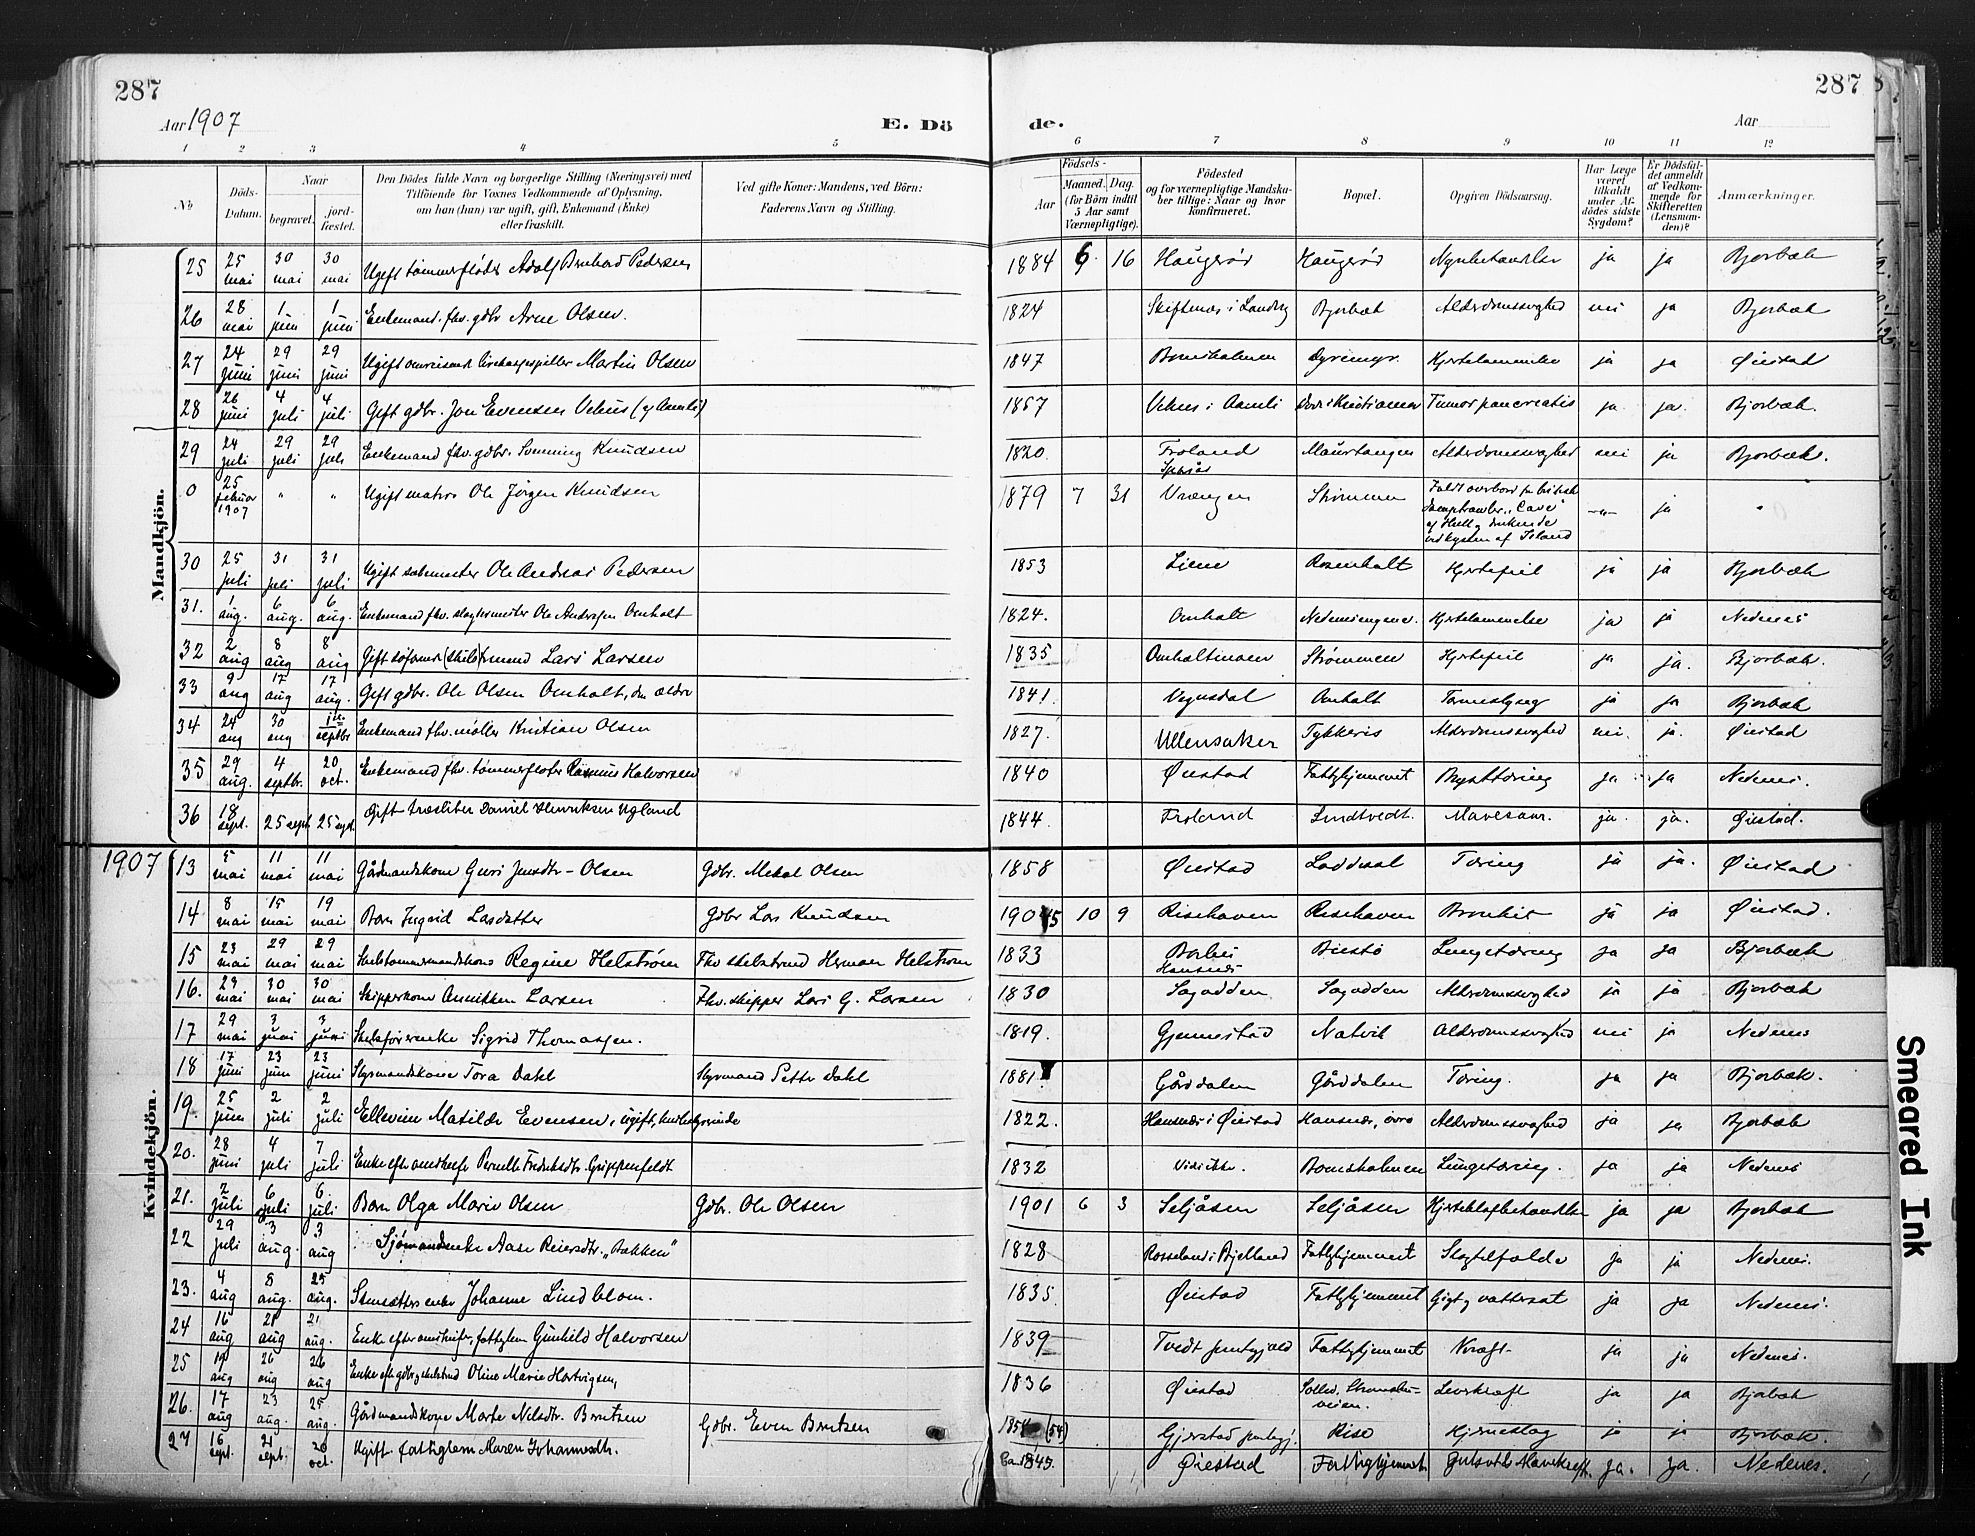 287
287
Aar 1907
E. Dö
de.
Aar
1 2 3 4 5
6 7 8 9 10 11 12
№
Döds-Datum.
Naar
begravet.
jord-fæstet.
Den Dödes fulde Navn og borgerlige Stilling (Næringsvei) med
Tilföiende for Voxnes Vedkommende af Oplysning,
om han (hun) var ugift, gift, Enkemand (Enke)
eller fraskilt.
Ved gifte Koner: Mandens, ved Börn:
Faderens Navn og Stilling.
Födsels-
Aar
Maaned. Dag.
(for Börn indtil
5 Aar samt
Værnepligtige).
Födested
og for værnepligtige Mandska-
ber tillige: Naar og hvor
konfirmeret.
Bopæl.
Opgiven Dödsaarsag.
Har Læge
været
tilkaldt
under Af-
dödes sidste
Sygdom?
Er Dödsfal-
det anmeldt
af Vedkom-
mende for
Skifteretten
(Lensman-
den)?
Anmærkninger.
Mandkjön.
25 25 mai 30 mai 30 mai Ugift tømmerfløder Adolf Bernhard Pedersen 1884 6 16 Haugerød Haugerød ja ja Bjorbæk
26 28 mai 1 juni 1 juni Enkemand. fhv. gdbr Arne Olsen. 1824 Skiftenæs i Landvig Bjorbæk Alderdomssvaghed nei ja Bjorbæk
27 24 juni 29 juni 29 juni Ugift Martin Olsen 1847 Bomsholmen Dyremyr. Hjertelammelse ja ja Øiestad
28 26 juni 4 juli 4 juli Gift gdbr. Jon Evensen Vehus (af Aamli) 1857 Vehus i Aamli Tumor pancreatis ja ja. Bjorbæk.
29 24 juli 29 juli 29 juli Enkemand fhv. gdbr. Knudsen 1820. Froland Maurtangen Alderdomssvaghed nei ja Bjorbæk.
0 25 februar 1907 " " Ugift matros Ole Jørgen Knudsen 1879 7 31 Vrængen Strømmen Faldt overbord fra britisk damptrawler "Cave" af Hull og druknede ved kysten af Island -"- ja "
30 25 juli 31 juli 31 juli Ugift Ole Andreas Pedersen 1853 Liene Rosenholt Hjertefeil ja ja Bjorbæk
31. 1 aug. 6 aug. 6 aug. Enkemand fhv. Ole Andersen Omholt 1824. Omholt Nedenesengene. Hjertelammelse ja ja Nedenes
32 2 aug 8 aug 8 aug Gift Lars Larsen 1835 Omholtmoen Strømmen Hjertefeil ja ja. Bjorbæk.
33 9 aug 17 aug 17 aug. Gift gdbr. Ole Olsen Omholt, den ældre 1841. Vegusdal Omholt ja ja Bjorbæk
34 24 aug 30 aug 1ste septbr Enkemand fhv. møller Kristian Olsen 1827. Ullensaker Tykkeris Alderdomssvaghed nei. ja. Øiestad
35 29 aug. 4 septbr. 20 oct. Enkemand fhv. tømmerfløter Rasmus Halvorsen 1840 Øiestad Fattighjemmet Brysttæring ja ja Nedenes.
36 18 sept. 25 sept 25 sept. Gift træsliber Daniel Henriksen Ugland 1844. Froland Lindtvedt. Mavesaar. ja. ja. Øiestad.
1907
Kvindekjön.
13 5 mai 11 mai 11 mai Gårdmandskone Guri Jensdtr-Olsen Gdbr. Mekal Olsen 1858 Øiestad Loddesal Tæring ja ja. Øiestad
14 8 mai 15 mai 19 mai Barn Ingrid Larsdatter Gdbr Lars Knudsen 1905 10 9 Risehaven Risehaven Bronkit ja ja Øiestad.
15 23 mai 29 mai 29 mai Regine Helstrøm Fhv skibstømmermand Herman Helstrøm 1833 Barbu Hansnes Biestø Lungetæring ja ja Bjorbæk
16. 29 mai 30 mai 30 mai Skipperkone Annikken Larsen Fhv. skipper Lars G. Larsen 1830 Sagodden Sagodden Alderdomssvaghed ja ja Bjorbæk
17 29 mai 3 juni 3 juni Skibsførerenke Sigrid Thomassen. 1819. Gjennestad Natvik Alderdomssvaghed nei ja Nedenes
18 17 juni 23 juni 23 juni Styrmandskone Tora Dahl Styrmand Petter Dahl 1881. Gårddalen Gårddalen Tæring. ja ja Bjorbæk.
19. 25 juni 2 juli 2 juli Ellevine Matilde Evensen, ugift, husbestyrerinde 1822. Hansnæs i Øiestad Hansnæs, øvre Alderdomssvaghed ja ja Bjorbæk
20. 28 juni 4 juli 7 juli Enke efter Pernille Fredriksdtr. Grippenfeldt 1832 Vides ikke. Bomsholmen Lungetæring. ja ja Nedenes
21. 2 juli 6 juli 6 juli Barn Olga Marie Olsen Gdbr. Ole Olsen 1901 6 3 Seljåsen Seljåsen ja ja Bjorbæk
22 29 juli 3 aug. 3 aug Sjømandsenke Aase Reiersdtr. "Bakken" 1828 Rosseland i Bjelland Fattighjemmet Slagtilfælde ja ja Nedenes.
23. 4 aug 8 aug. 25 aug. Johanne Lindblom. 1835. Øiestad Fattighjemmet Gigt og vattersot ja ja Nedenes.
24 16 aug 21 aug 21 aug. Enke efter fattiglem Gunhild Halvorsen 1839 Tvedt præstegjæld Fattighjemmet ja ja Nedenes.
25 19 aug 26 aug 26 aug Enke efter Oline Marie Hartvigsen, 1836 Øiestad Strømsbuveien. Leverkræft ja ja Bjorbæk
26. 17 aug 23 aug. 25 aug. Gårdmandskone Marte Nilsdtr. Berntsen Gdbr. Even Berntsen 1854 (54) Gjerstad præstegj. Rise Hjerneslag ja ja Bjorbæk.
27 16 sept. 21 sept. 20 oct. Ugift fattiglem Maren Johannesdtr. Ca. 1845. Øiestad Fattighjemmet ja. ja. Nedenes.
Smeared Ink